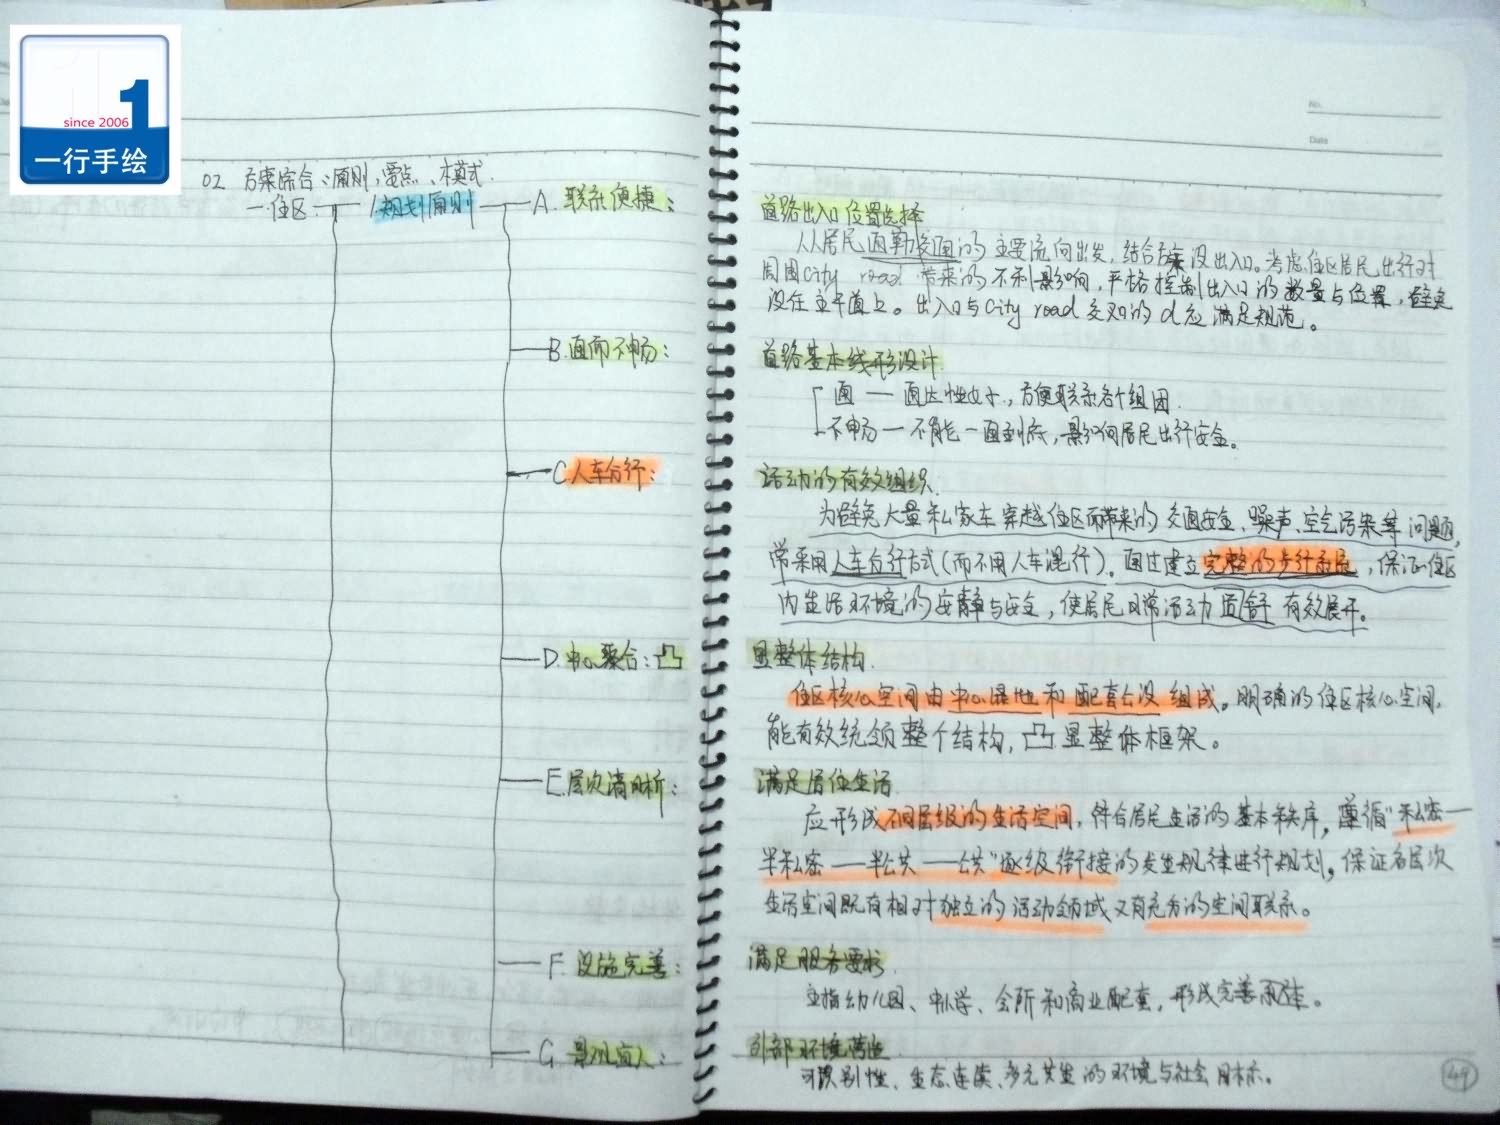 1
since 2006
一行手绘
No.
Date
02 方案综合：原则，要点、本模式.
一.住区：1.规划原则
A.联系便捷：
道路出入口位置选择
从居民通勤 的主要流向出发，结合方案设出入口。考虑住区居民出行对
周围city road 带来的不利影响，严格控制出入口的数量与位置，避免
设在主干道上。出入口与city road 交叉的d应满足规范。
B.通而不畅：
道路基本线形设计
通 — 通达性好，方便联系各个组团.
不畅 — 不能一通到底，影响居民出行安全。
C.人车分行：
活动的有效组织.
为避免大量私家车穿越住区而带来的交通安全、噪声、空气污染等问题，
常采用人车分行方式(而不用人车混行)。通过建立完整的步行系统，保证住区
内生活环境的安静与安全，使居民日常活动 舒 有效展开。
D.中心聚合：凸
显整体结构.
住区核心空间由中心绿地和配套公设组成。明确的住区核心空间，
能有效统领整个结构，凸显整体框架。
E.层次清晰：
满足居住生活
应形成不同层级的生活空间，符合居民生活的基本秩序，遵循“私密—
半私密—半公共—公共”逐级衔接的发生规律进行规划，保证各层次
生活空间既有相对独立的活动领域又有充分的空间联系。
F.设施完善：
满足服务要求.
主指幼儿园、中小学、会所和商业配套，形成完善
G.景观宜人：
外部环境营造
可识别性、生态连续、多元共生的环境与社会目标。
49